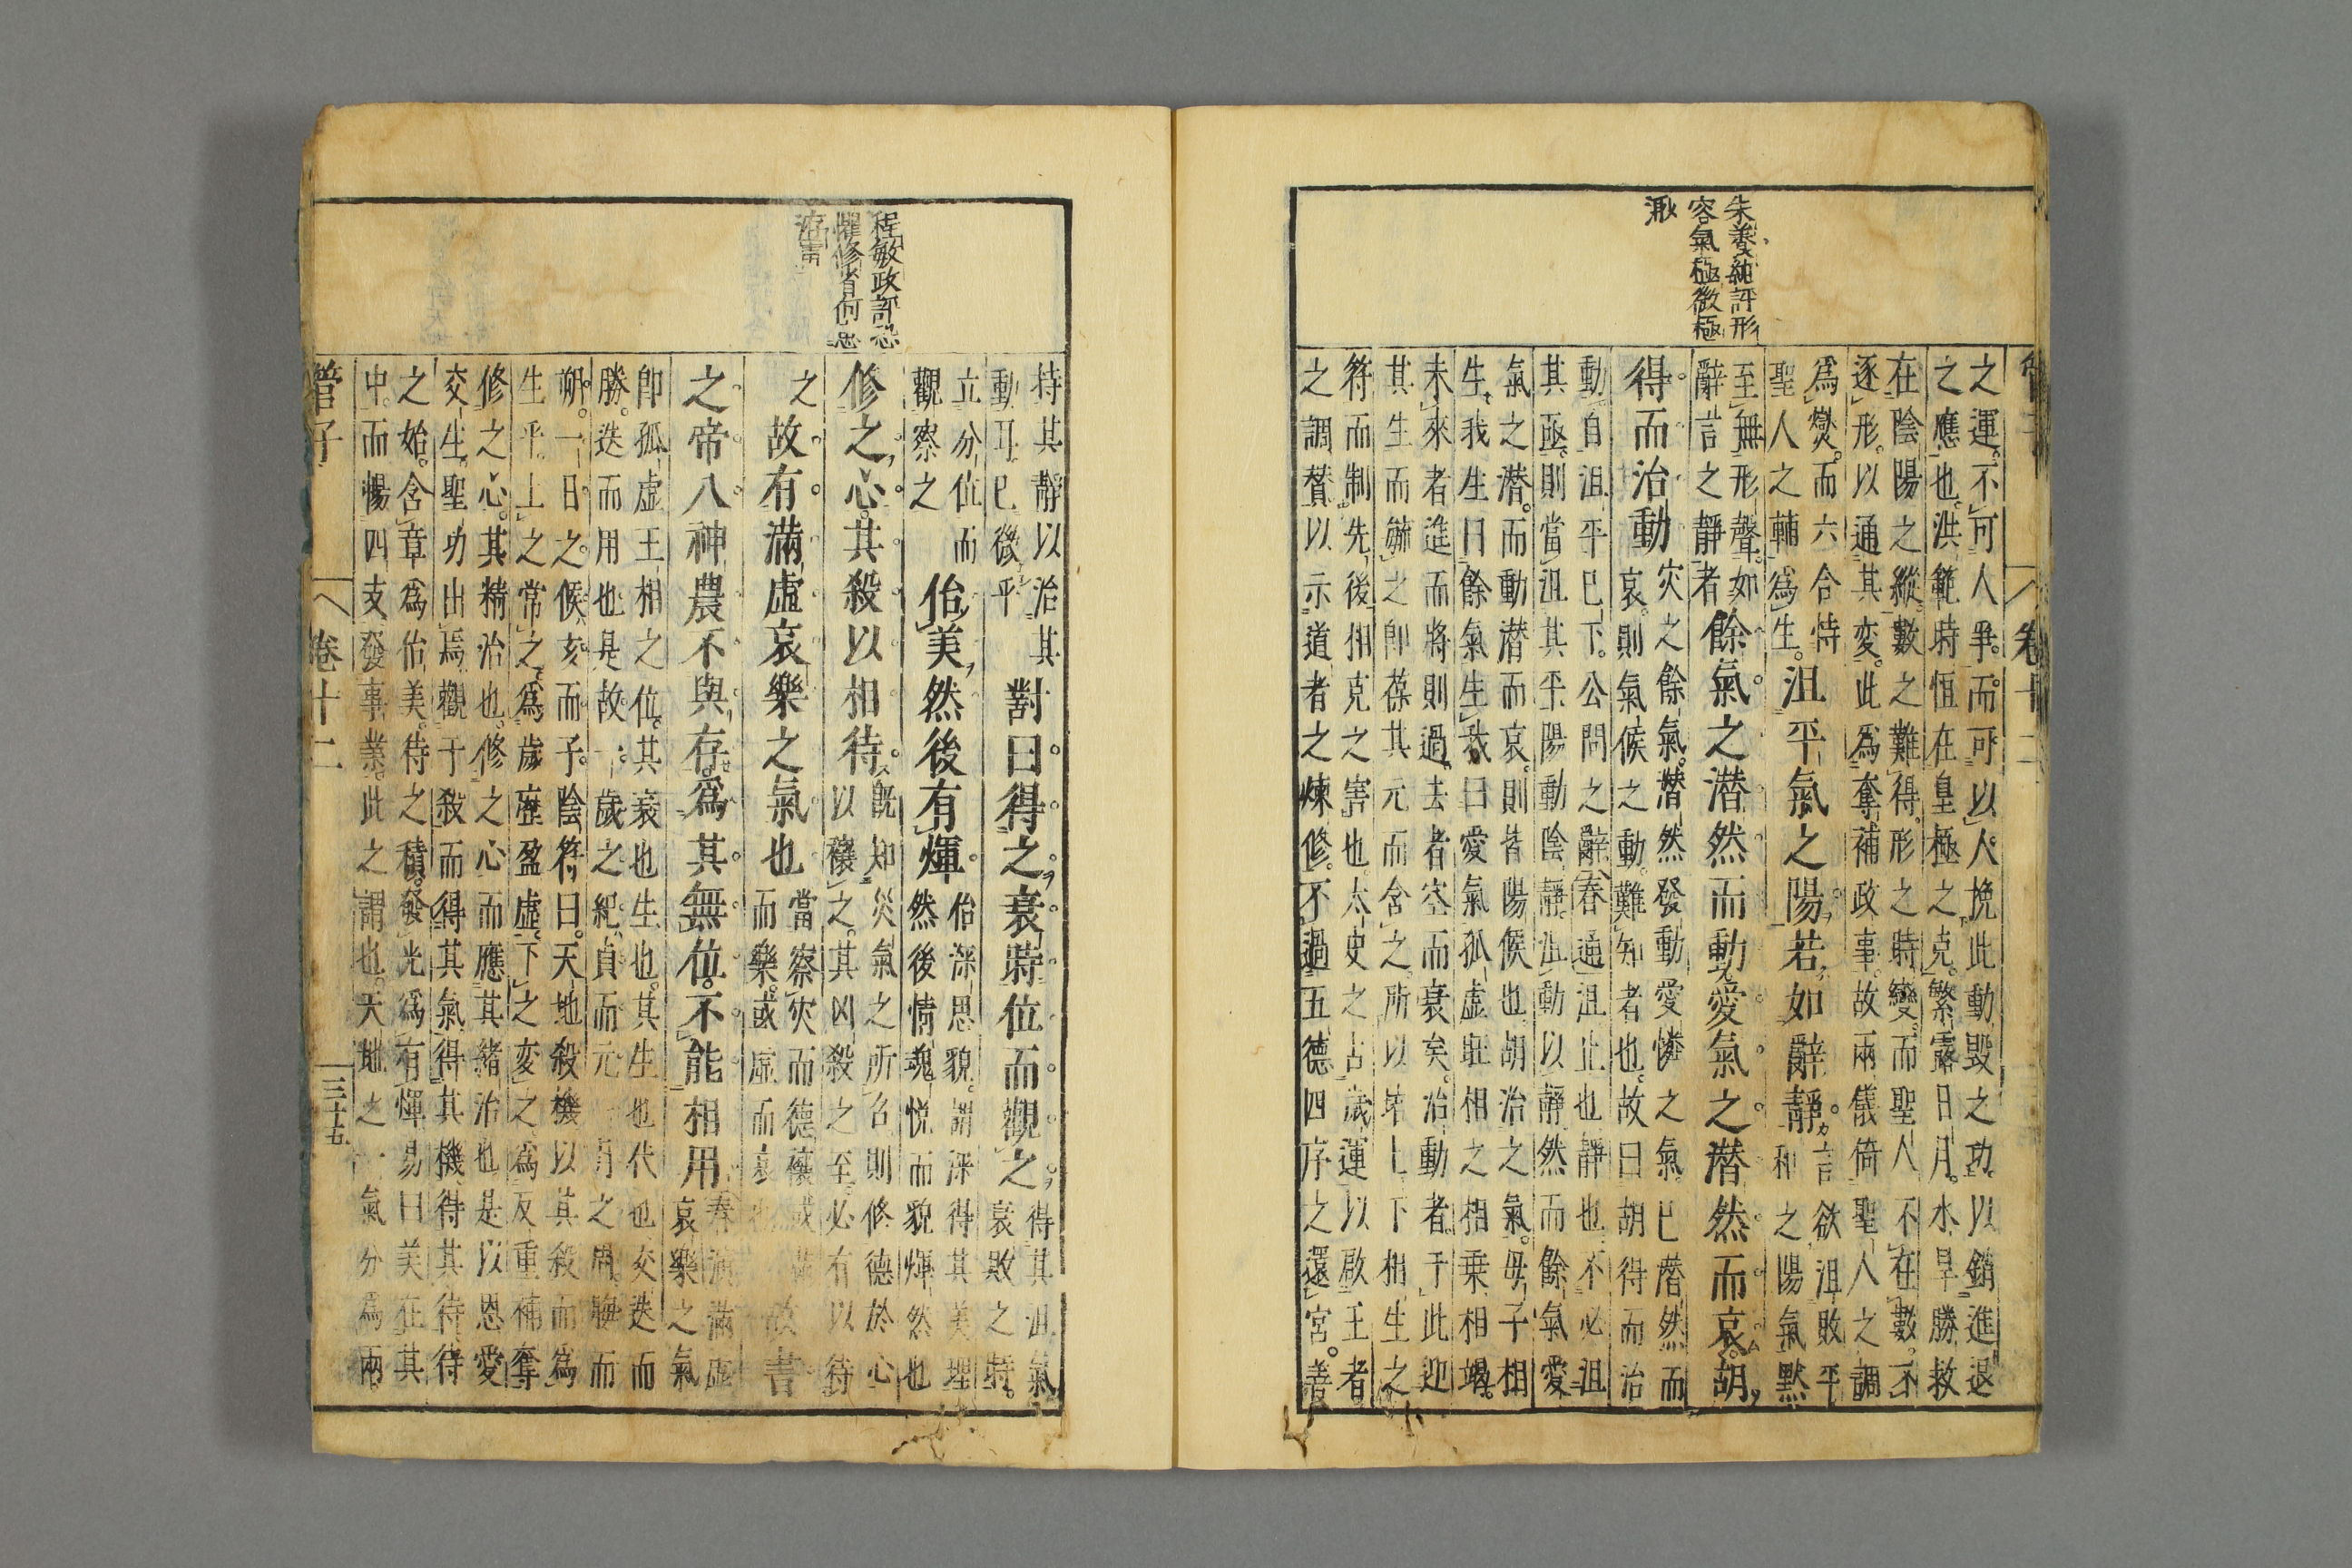 朱養純評形
容氣極微極
之運不可人爭而可以人挽此動毀之功以銷進退
之應也洪範時恒在皇極之克繁露日月水旱勝救
在陰陽之縱數之難得形之時變而聖人不在數不
逐形以通其変此為奪補政事故兩儀倚聖人之調
為爕而六合恃
聖人之輔為生
沮平氣之陽若如辭靜
言欲沮敗平
和之陽氣黙
至無形聲如
辭言之靜者
餘氣之潜然而動愛氣之潜然而哀胡
得而治動
灾之餘氣潜然發動愛憐之氣已潜然而
哀則氣候之動難知者也故曰胡得而治
動自沮平已下公問之辭春通沮止也靜也不必沮
其亟則當沮其平陽動陰靜沮動以靜然而餘氣愛
氣之潜而動潜而哀則皆陽候也胡治之氣母子相
生我生曰餘氣生我曰愛氣孤虛旺相之相乗相竭
未來者進而將則過去者空而衰矣治動者于此迎
其生而毓之即葆其元而含之所以苐上下相生之
符而制先後相克之害也太史之占歲運以啟王者
之調賛以示道者之煉修不過五德四序之還宮善
持其靜以治其
動耳已後平
對曰得之衰時位而觀之
得其沮氣
衰敗之時
立分位而
觀察之
佁美然後有煇
佁深思貌謂深得其美理
然後情魂悦而貌煇然也
修之心其殺以相待
既知災氣之所召則修德於心
以穰之其凶殺之至必有以待
之
故有滿虛哀樂之氣也
當察灾而德穰或滿
而樂或虛而哀也
故書
之帝八神農不與存為其無位不能相用
春演滿虛
哀樂之氣
即孤虛王相之位其衰也生也其生也代也交迭而
勝迭而用也是故一歲之紀貞而元一月之周晦而
朔一日之候亥而子陰符曰天地殺機以其殺而為
生乎上之常之為歲歷盈虛下之変之為反重補奪
修之心其精治也修之心而應其緒治也是以恩愛
交生聖功出焉觀于殺而得其氣得其機待其待待
之始含章為佁美待之積發光為有煇易曰美在其
中而暢四支發事業此之謂也天地之一氣分為兩
管子
卷十二
三十五